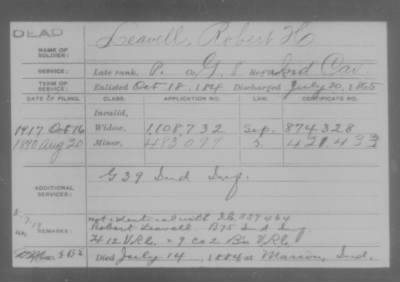 DEAD
NAME OF SOLDIER: Leavell, Robert H
SERVICE: Late rank, P. Co. G, 8 Reg't Ind Cav
TERM OF SERVICE: Enlisted Oct 18, 1864 Discharged July 20, 1865
DATE OF FILING. CLASS. APPLICATION NO. LAW. CERTIFICATE NO.
Invalid,
1917 Oct 16 Widow, 1,108,732 Sep. 874,328
1890 Aug 20 Minor, 483,099 421,433
ADDITIONAL SERVICES: G 39 Ind Inf.
REMARKS: not identical with
Robert Leavell B 75 Ind Inf
H 12 V.R.C. + 9 Co 2 Bn V.R.C.
Died July 14, at Marion, Ind.